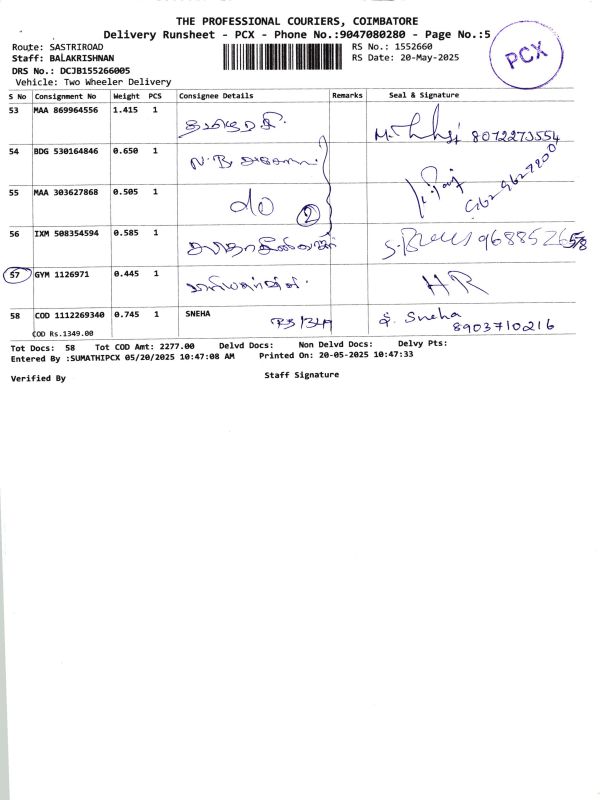 THE PROFESSIONAL COURIERS, COIMBATORE
Delivery Runsheet - PCX - Phone No.:9047080280 - Page No.:5
Route: SASTRIROAD
Staff: BALAKRISHNAN
DRS No.: DCJB155266005
Vehicle: Two Wheeler Delivery
RS No.: 1552660
RS Date: 20-May-2025
PCX
S No Consignment No Weight PCS Consignee Details Remarks Seal & Signature
53 MAA 869964556 1.415 1 8072273554
54 BDG 530164846 0.650 1 N.B.
55 MAA 303627868 0.505 1 do 2
56 IXM 508354594 0.585 1
57 GYM 1126971 0.445 1 HR
58 COD 1112269340 0.745 1 SNEHA Sneha
COD Rs.1349.00 8903710216
Tot Docs: 58 Tot COD Amt: 2277.00 Delvd Docs: Non Delvd Docs: Delvy Pts:
Entered By :SUMATHIPCX 05/20/2025 10:47:08 AM Printed On: 20-05-2025 10:47:33
Verified By Staff Signature